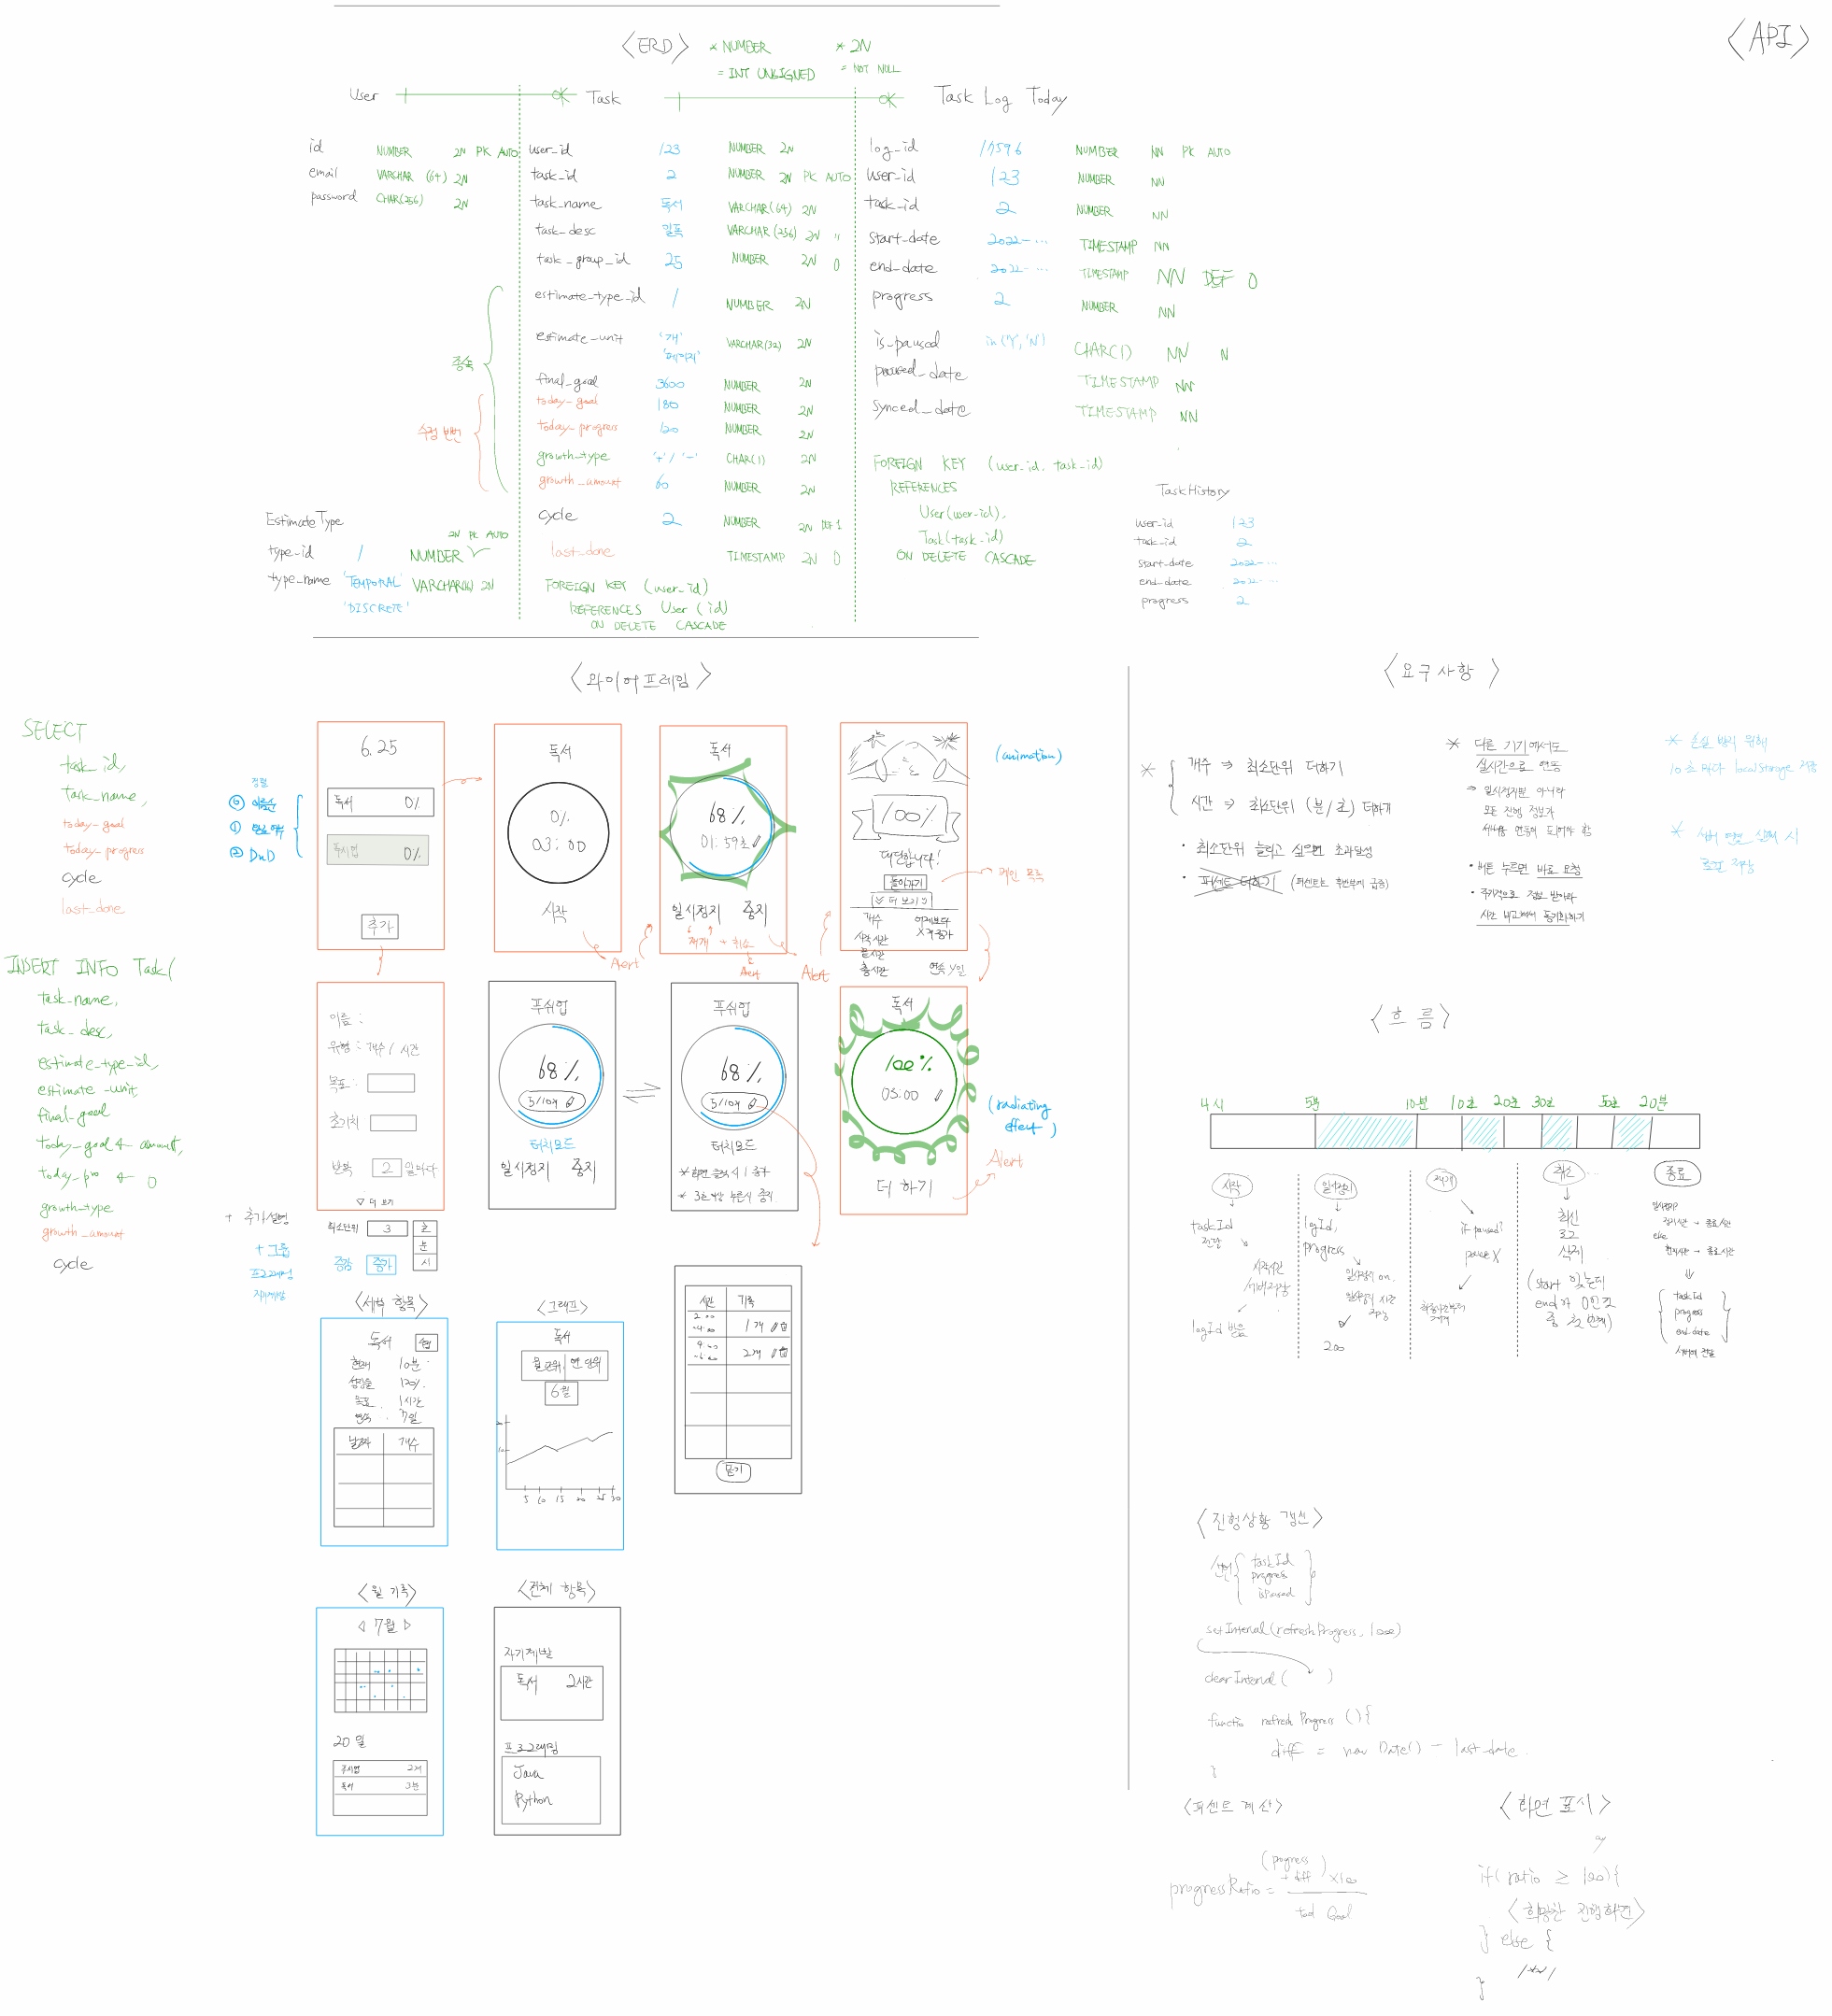 <ERD>
* NUMBER
= INT UNSIGNED
* 2N
= NOT NULL
<API>
User
Task
Task Log Today
id NUMBER 2N PK AUTO
email VARCHAR (64) 2N
password CHAR(256) 2N
user_id 123 NUMBER 2N
task_id 2 NUMBER 2N PK AUTO
task_name 독서 VARCHAR(64) 2N
task_desc VARCHAR(256) 2N
task_group_id 25 NUMBER 2N 0
estimate_type_id 1 NUMBER 2N
estimate_unit '개' VARCHAR(32) 2N
'페이지'
final_goal 3600 NUMBER 2N
today_goal 180 NUMBER 2N
today_progress 120 NUMBER 2N
growth_type '+' / '-' CHAR(1) 2N
growth_amount 60 NUMBER 2N
cycle 2 NUMBER 2N DEF 1
last_done TIMESTAMP 2N 0
FOREIGN KEY (user_id)
REFERENCES User (id)
ON DELETE CASCADE
종속
수정 빈번
Estimate Type
2N PK AUTO
type_id 1 NUMBER
type_name 'TEMPORAL' VARCHAR(16) 2N
'DISCRETE'
log_id 17596 NUMBER NN PK AUTO
user_id 123 NUMBER NN
task_id 2 NUMBER NN
start_date 2022-... TIMESTAMP NN
end_date 2022-... TIMESTAMP NN DEF 0
progress 2 NUMBER NN
is_paused in('Y', 'N') CHAR(1) NN N
paused_date TIMESTAMP NN
synced_date TIMESTAMP NN
FOREIGN KEY (user_id, task_id)
REFERENCES
User(user_id),
Task(task_id)
ON DELETE CASCADE
Task History
user_id 123
task_id 2
start_date 2022-...
end_date 2022-...
progress 2
<와이어프레임>
SELECT
task_id,
task_name,
today_goal
today_progress
cycle
last_done
INSERT INTO Task(
task_name,
task_desc,
estimate_type_id,
estimate_unit
final_goal
today_goal ← amount,
today_pro ← 0
growth_type
growth_amount
cycle
정렬
⓪ 이름순
① 완료 여부
② DnD
6.25
독서 0%
푸쉬업 0%
추가
독서
0%
03:00
시작
Alert
독서
68%
01:59초
일시정지 중지
재개 + 취소
Alert
Alert
100%
대단합니다!
돌아가기
더 보기
개수
시작시간
끝시간
총시간
어제보다
X개 증가
연속 Y일
(animation)
메인 목록
이름 :
유형 : 개수 / 시간
목표 :
초기치
반복 2 일마다
▽ 더 보기
최소단위 3
초
분
시
증감 증가
+ 추가설명
+ 그룹
프로그래밍
자기계발
푸쉬업
68%
3/10개
터치모드
일시정지 중지
푸쉬업
68%
3/10개
터치모드
* 화면 클릭 시 1 증가
* 3초 이상 누를시 중지
독서
100%
03:00
더 하기
(radiating effect)
Alert
시간 기록
1개
2개
닫기
<세부 항목>
독서
현재 10분
성장률 120%
목표 1시간
반복 7일
날짜 개수
<그래프>
독서
월 단위 연 단위
6월
20
10
5 10 15 20 25 30
<월 기록>
◁ 7월 ▷
20일
푸시업 2개
독서 3분
<전체 항목>
자기계발
독서 2시간
프로그래밍
Java
Python
<요구사항>
* 개수 ⇒ 최소단위 더하기
시간 ⇒ 최소단위 (분/초) 더하기
• 최소단위 늘리고 싶으면 초과달성
• 퍼센트 더하기 (퍼센트는 후반부에 급증)
* 다른 기기에서도
실시간으로 연동
⇒ 일시정지뿐 아니라
모든 진행 정보가
서버와 연동이 되어야 함
• 버튼 누르면 바로 요청
• 주기적으로 정보 받아와
시간 비교해서 동기화하기
* 손실 방지 위해
10초 마다 localStorage 저장
* 서버 연결 실패 시
로컬 저장
<흐름>
4시 5분 10분 10초 20초 30초 50초 20분
시작
taskId
전달
시작시간
서버저장
logId 받음
일시정지
logId,
progress
일시정지 on.
일시정지 시간
저장
200
재개
if paused?
pause X
취소
최신
로그
삭제
(start 있는데
end가 0인 것
중 첫 번째)
종료
일시정지?
정지시간 → 종료시간
else
현재시간 → 종료시간
taskId
progress
end_date
서버에 전달
<진행상황 갱신>
taskId
progress
isPaused
setInterval(refreshProgress, 1000)
clearInterval( )
functio refreshProgress () {
diff = new Date() - last_date.
}
<퍼센트 계산>
progressRatio = (progress + diff) ×100
tod Goal
<화면 표시>
if( ratio ≥ 100) {
<희망찬 진행화면>
} else {
}